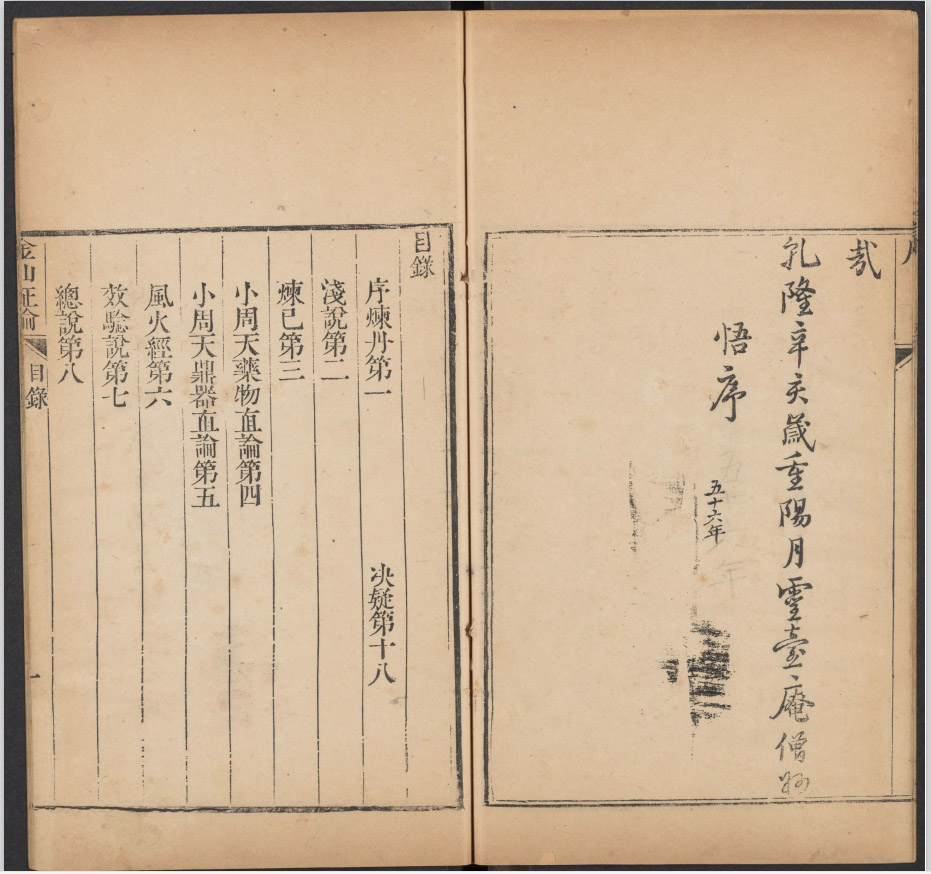 哉
乾隆辛亥歲重陽月靈臺庵僧妙
悟序
五十六年
目錄
序煉丹第一
决疑第十八
淺說第二
煉己第三
小周天藥物直論第四
小周天鼎器直論第五
風火經第六
效騐說第七
總說第八
目錄
一